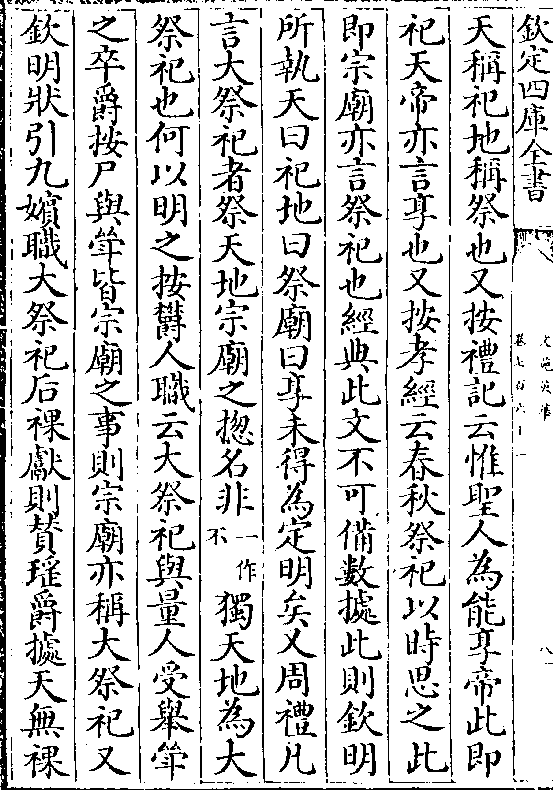 欽定四庫全書
文苑英華
卷七百六十一
八
天稱祀地稱祭也又按禮記云惟聖人為能享帝此即
祀天帝亦言享也又按孝經云春秋祭祀以時思之此
即宗廟亦言祭祀也經典此文不可備數據此則欽明
所執天曰祀地曰祭廟曰享未得為定明矣又周禮凡
言大祭祀者祭天地宗廟之揔名非一作不獨天地為大
祭祀也何以明之按欎人職云大祭祀與量人受舉斝
之卒爵按尸與斝皆宗廟之事則宗廟亦稱大祭祀又
欽明狀引九嬪職大祭祀后祼獻則賛瑤爵據天無祼